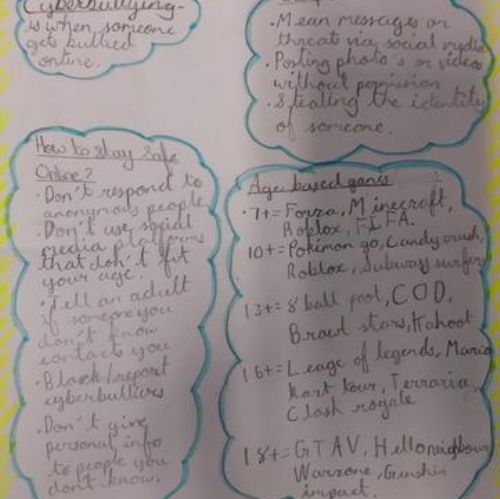 Cyberbullying-
is when someone
gets bullied
online.
· Mean messages or
threat via social mydia
· Posting photo's or videos
without pomission
· Stealing the identity
of someone.
How to stay safe
Online?
· Don't respond to
anonymous people
· Don't use social
media platforms
that don't fit
your age.
· Tell an adult
if someone you
don't know
contacts you
· Block/report
cyberbullies
· Don't give
personal info
to people you
don't know.
Age based games
· 7+= Forza, Minecraft,
Roblox, FIFA.
10+= Pokimon go, Candy crush,
Roblox, Subway surfers
13+= 8 ball pool, COD,
Brawl stars, Kahoot
16+= Leage of legends, Mario
Kart tour, Terraria,
Clash royale
18+= GTAV, Helloneighbour,
Warzone, Genshin
impact.